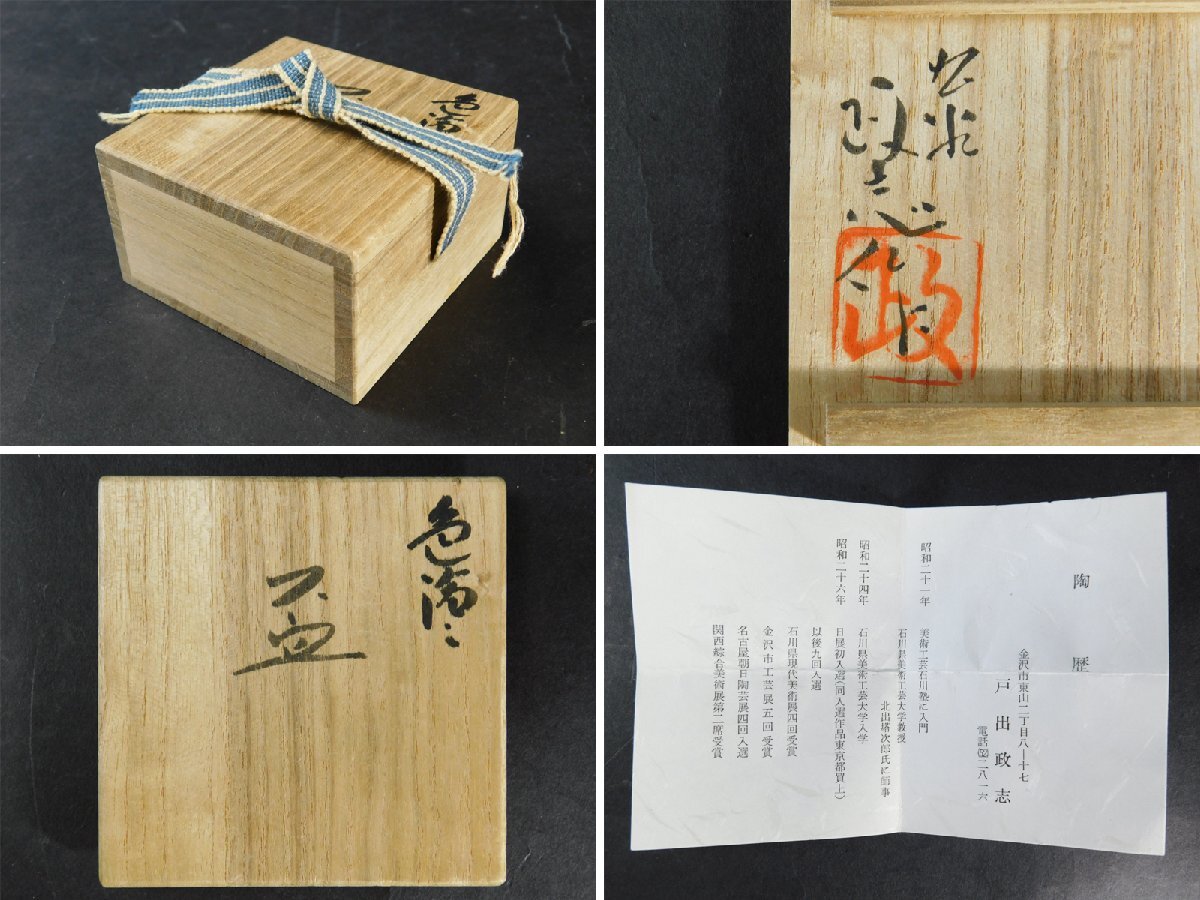 色
色絵
盃
九谷
政志作
政
陶歴
金沢市東山二丁目八ー十七
戸出政志
電話
二八一六
昭和二十一年
美術工芸石川塾に入門
石川県美術工芸大学教授
北出塔次郎氏に師事
昭和二十四年
石川県美術工芸大学入学
昭和二十六年
日展初入選(同入選作品東京都買上)
以後九回入選
石川県現代美術展四回受賞
金沢市工芸展五回受賞
名古屋朝日陶芸展四回入選
関西綜合美術展第二席受賞